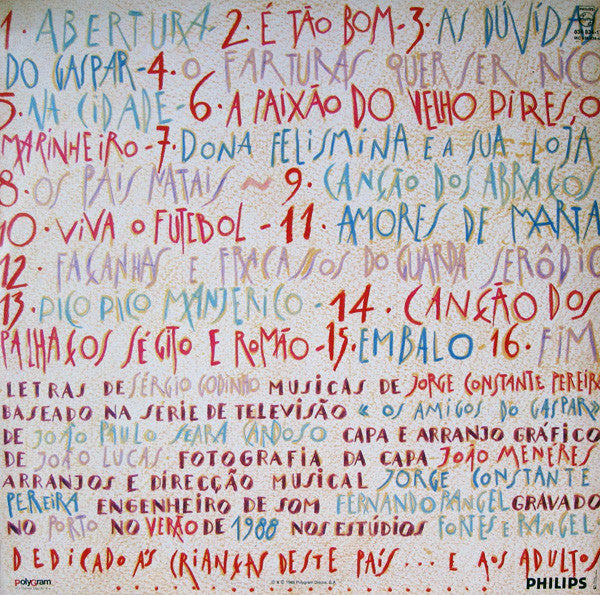 1. ABERTURA - 2. É TÃO BOM - 3. AS DÚVIDAS
DO GASPAR - 4. O FARTURAS QUER SER RICO
5. NA CIDADE - 6. A PAIXÃO DO VELHO PIRES, O
MARINHEIRO - 7. DONA FELISMINA E A SUA LOJA
8. OS PAIS NATAIS ~ 9. CANÇÃO DOS ABRAÇOS
10. VIVA O FUTEBOL - 11. AMORES DE MARTA
12. FAÇANHAS E FRACASSOS DO GUARDA SERÔDIO
13. PICO PICO MANJERICO - 14. CANÇÃO DOS
PALHAÇOS SÉGITO E ROMÃO - 15. EMBALO - 16. FIM
LETRAS DE SÉRGIO GODINHO MUSICAS DE JORGE CONSTANTE PEREIRA
BASEADO NA SERIE DE TELEVISÃO « OS AMIGOS DO GASPAR»
DE JOÃO PAULO SEARA CARDOSO CAPA E ARRANJO GRÁFICO
DE JOÃO LUCAS FOTOGRAFIA DA CAPA JOÃO MENERES
ARRANJOS E DIRECÇÃO MUSICAL JORGE CONSTANTE
PEREIRA ENGENHEIRO DE SOM FERNANDO RANGEL GRAVADO
NO PORTO NO VERÃO DE 1988 NOS ESTÚDIOS FORTES E RANGEL
DEDICADO ÀS CRIANÇAS DESTE PAÍS... E AOS ADULTOS
polygram
PHILIPS